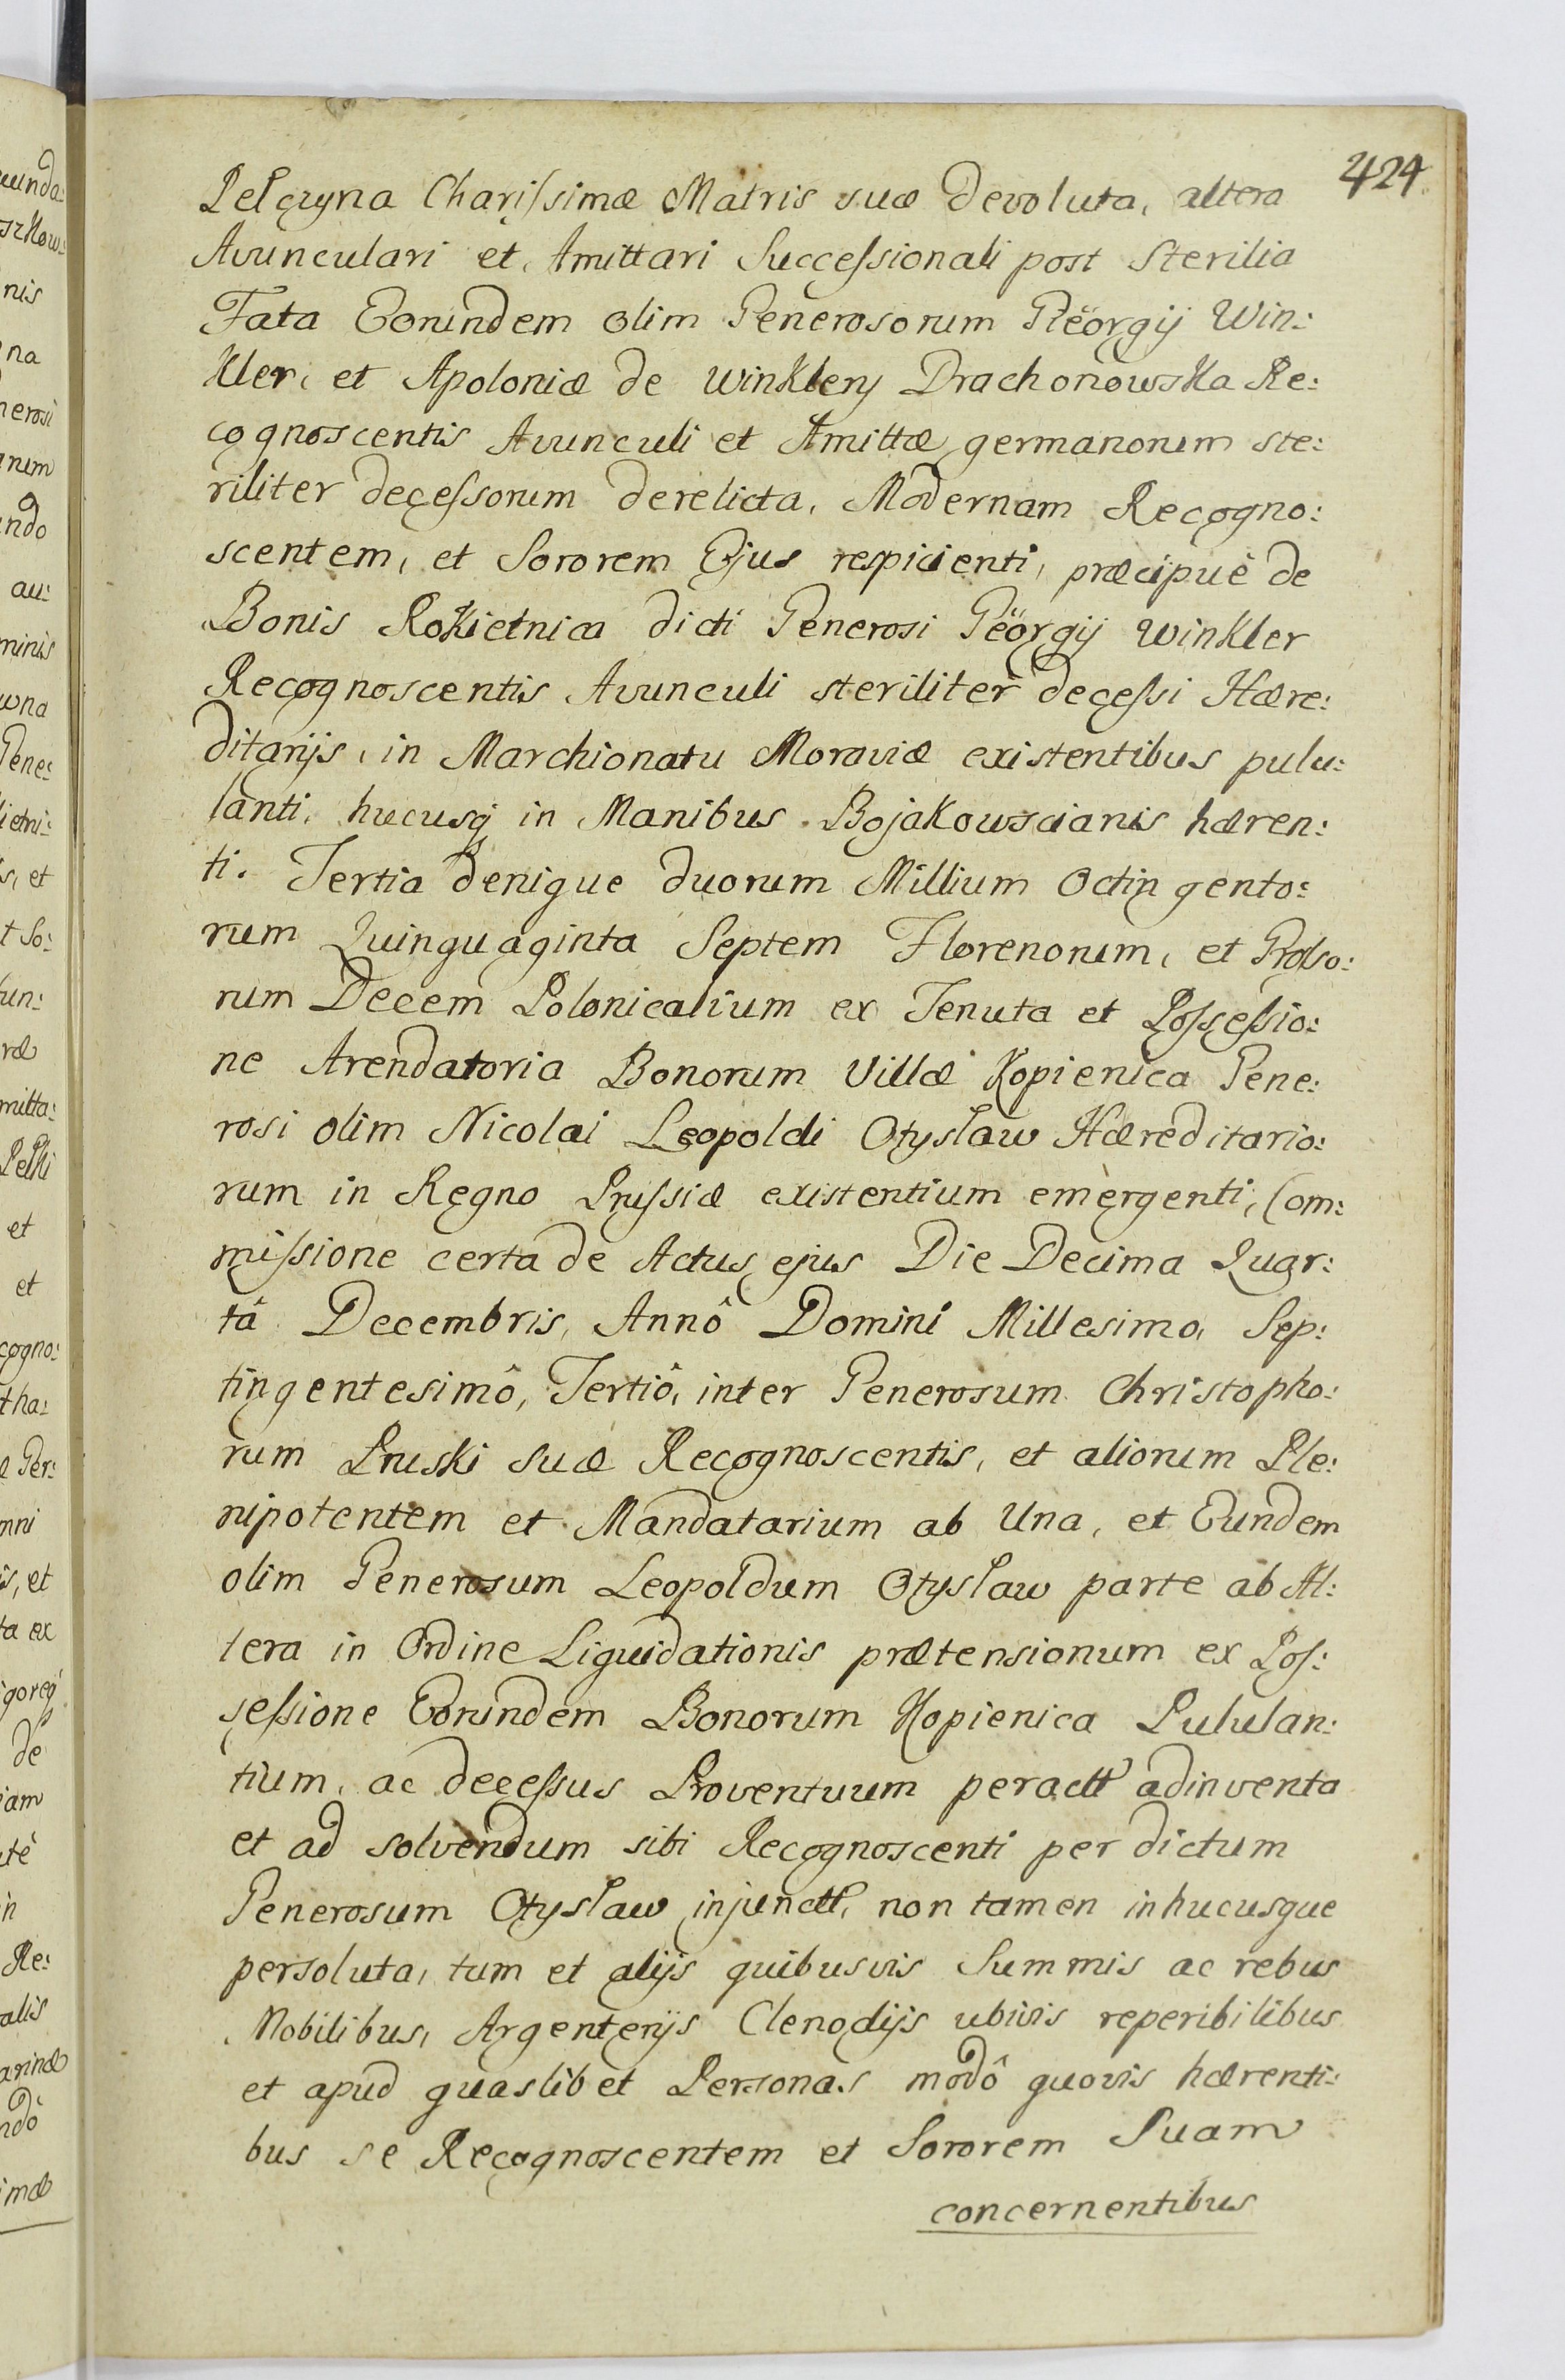 424
Pelczyna Charissimæ Matris suæ Devoluta, altera
Avunculari et Amittari Successionali post Sterilia
Fata Eorundem olim Generosorum Gëorgij Win:
kler, et Apoloniæ de Winklery Drachonowska Re:
cognoscentis Avunculi et Amittæ germanorum ste:
riliter decessorum derelicta, Modernam Recogno:
scentem, et Sororem Ejus respicienti, præcipuè de
Bonis Rokietnica dicti Generosi Gëorgij Winkler
Recognoscentis Avunculi steriliter decessi Hære:
ditarijs, in Marchionatu Moraviæ existentibus pulu:
lanti, hucusq in Manibus Bojakowscianis hæren:
ti. Tertia denique duorum Millium Octingento:
rum Quinquaginta Septem Florenorum, et Grosso:
rum Decem Polonicalium ex Tenuta et Possessio:
ne Arendatoria Bonorum Villæ Kopienica Gene:
rosi olim Nicolai Leopoldi Otyslaw Hæreditario:
rum in Regno Prussiæ existentium emergenti, Com:
missione certa de Actus ejus Die Decima Quar:
tâ Decembris, Annô Domini Millesimo, Sep:
tingentesimô, Tertiô, inter Generosum Christopho:
rum Pruski suæ Recognoscentis, et aliorum Ple:
nipotentem et Mandatarium ab Una, et Eundem
olim Generosum Leopoldum Otyslaw parte ab Al:
tera in Ordine Liquidationis prætensionum ex Pos:
sessione Eorundem Bonorum Kopienica Pululan:
tium, ac decessus Proventuum peractt adinventa
et ad solvendum sibi Recognoscenti per dictum
Generosum Otyslaw injunctt, non tamen inhucusque
persoluta, tum et alijs quibusvis Summis ac rebus
Mobilibus, Argenterijs Clenodijs ubivis reperibilibus
et apud quaslibet Personas modô quovis hærenti:
bus se Recognoscentem et Sororem Suam
concernentibus